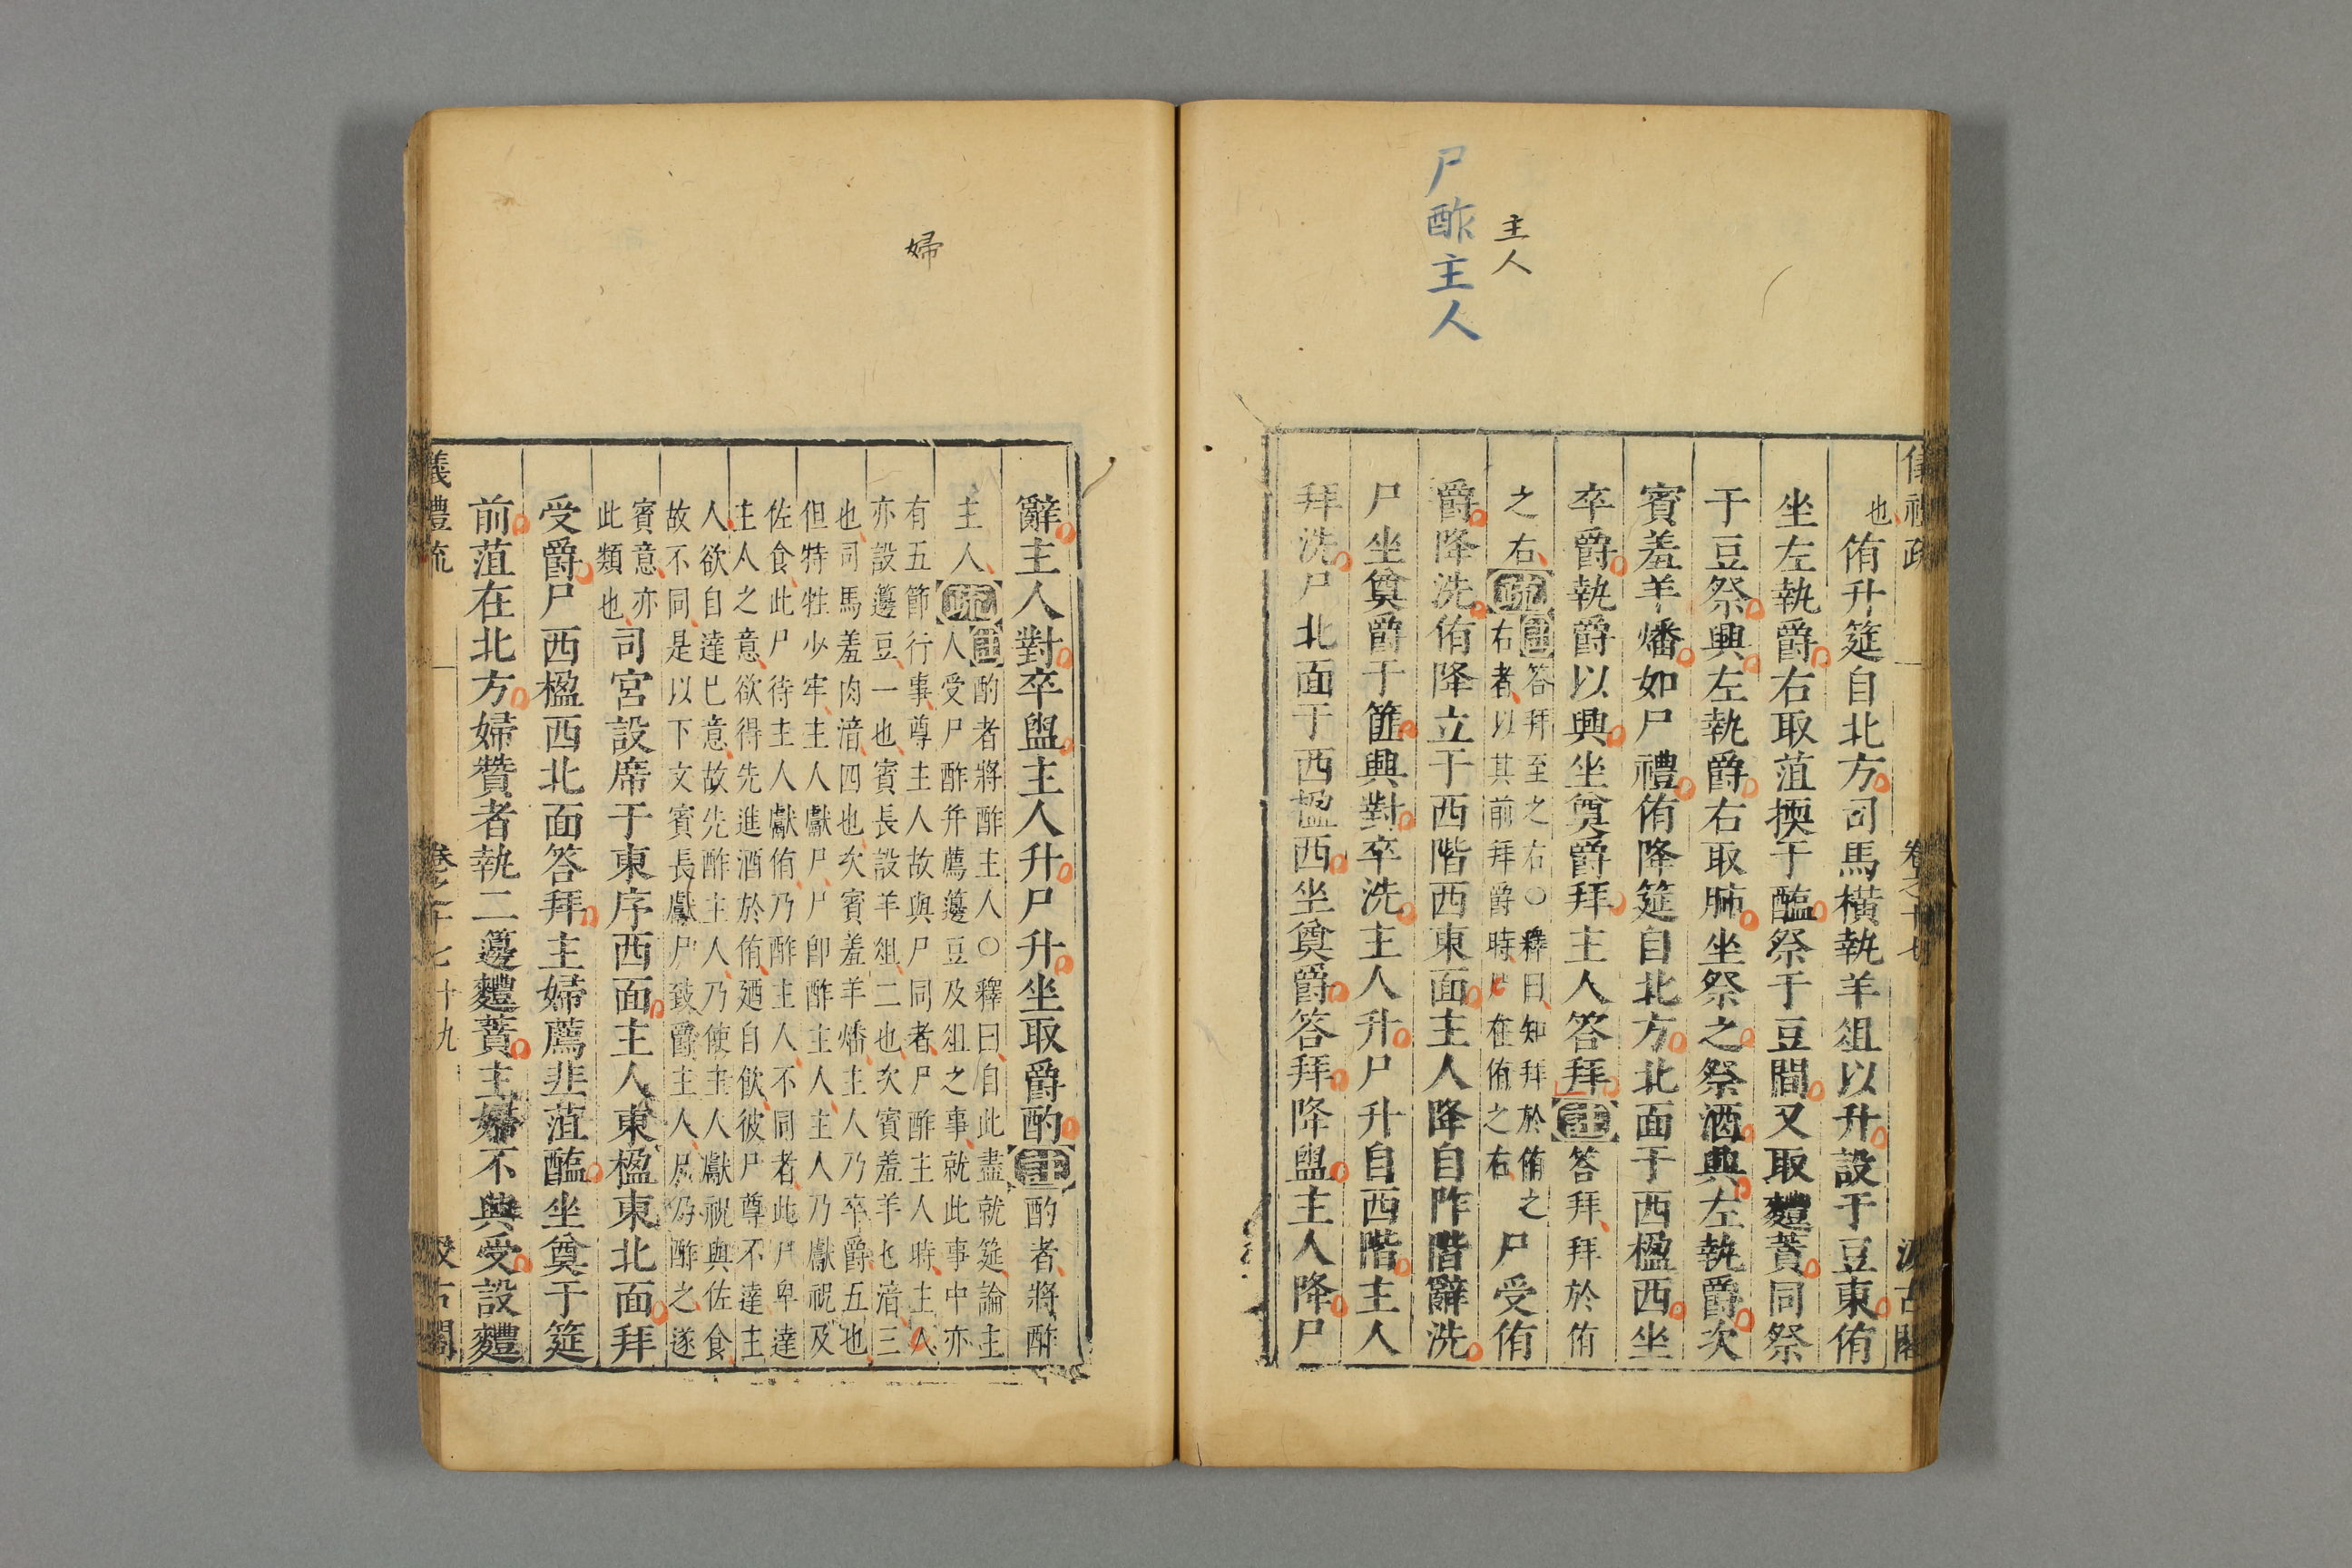 尸酢主人
主人
儀禮疏
卷之十七
汲古閣
也侑升筵自北方司馬橫執羊俎以升設于豆東侑
坐左執爵右取菹㨎于醢祭于豆間又取麷蕡同祭
于豆祭興左執爵右取肺坐祭之祭酒興左執爵次
賓羞羊燔如尸禮侑降筵自北方北面于西楹西坐
卒爵執爵以興坐奠爵拜主人答拜註答拜拜於侑
之右疏註答拜至之右○釋曰知拜於侑之
右者以其前拜爵時尸在侑之右
尸受侑
爵降洗侑降立于西階西東面主人降自阼階辭洗
尸坐奠爵于篚興對卒洗主人升尸升自西階主人
拜洗尸北面于西楹西坐奠爵答拜降盥主人降尸
婦
辭主人對卒盥主人升尸升坐取爵酌註酌者將酢
主人疏註酌者將酢主人○釋曰自此盡就筵論主
人受尸酢幷薦籩豆及俎之事就此事中亦
有五節行事尊主人故與尸同者尸酢主人時主人
亦設籩豆一也賓長設羊俎二也次賓羞羊匕湇三
也司馬羞肉湇四也次賓羞羊燔主人乃卒爵五也
但特牲少牢主人獻尸尸卽酢主人主人乃獻祝及
佐食此尸待主人獻侑乃酢主人不同者此尸卑達
主人之意欲得先進酒於侑廼自飮彼尸尊不達主
人欲自達已意故先酢主人乃使主人獻祝與佐食
故不同是以下文賓長獻尸致爵主人尸乃酢之遂
賓意亦
此類也
司宮設席于東序西面主人東楹東北面拜
受爵尸西楹西北面答拜主婦薦韭菹醢坐奠于筵
前菹在北方婦贊者執二籩麷蕡主婦不興受設麷
儀禮疏
卷之十七
七十九
汲古閣